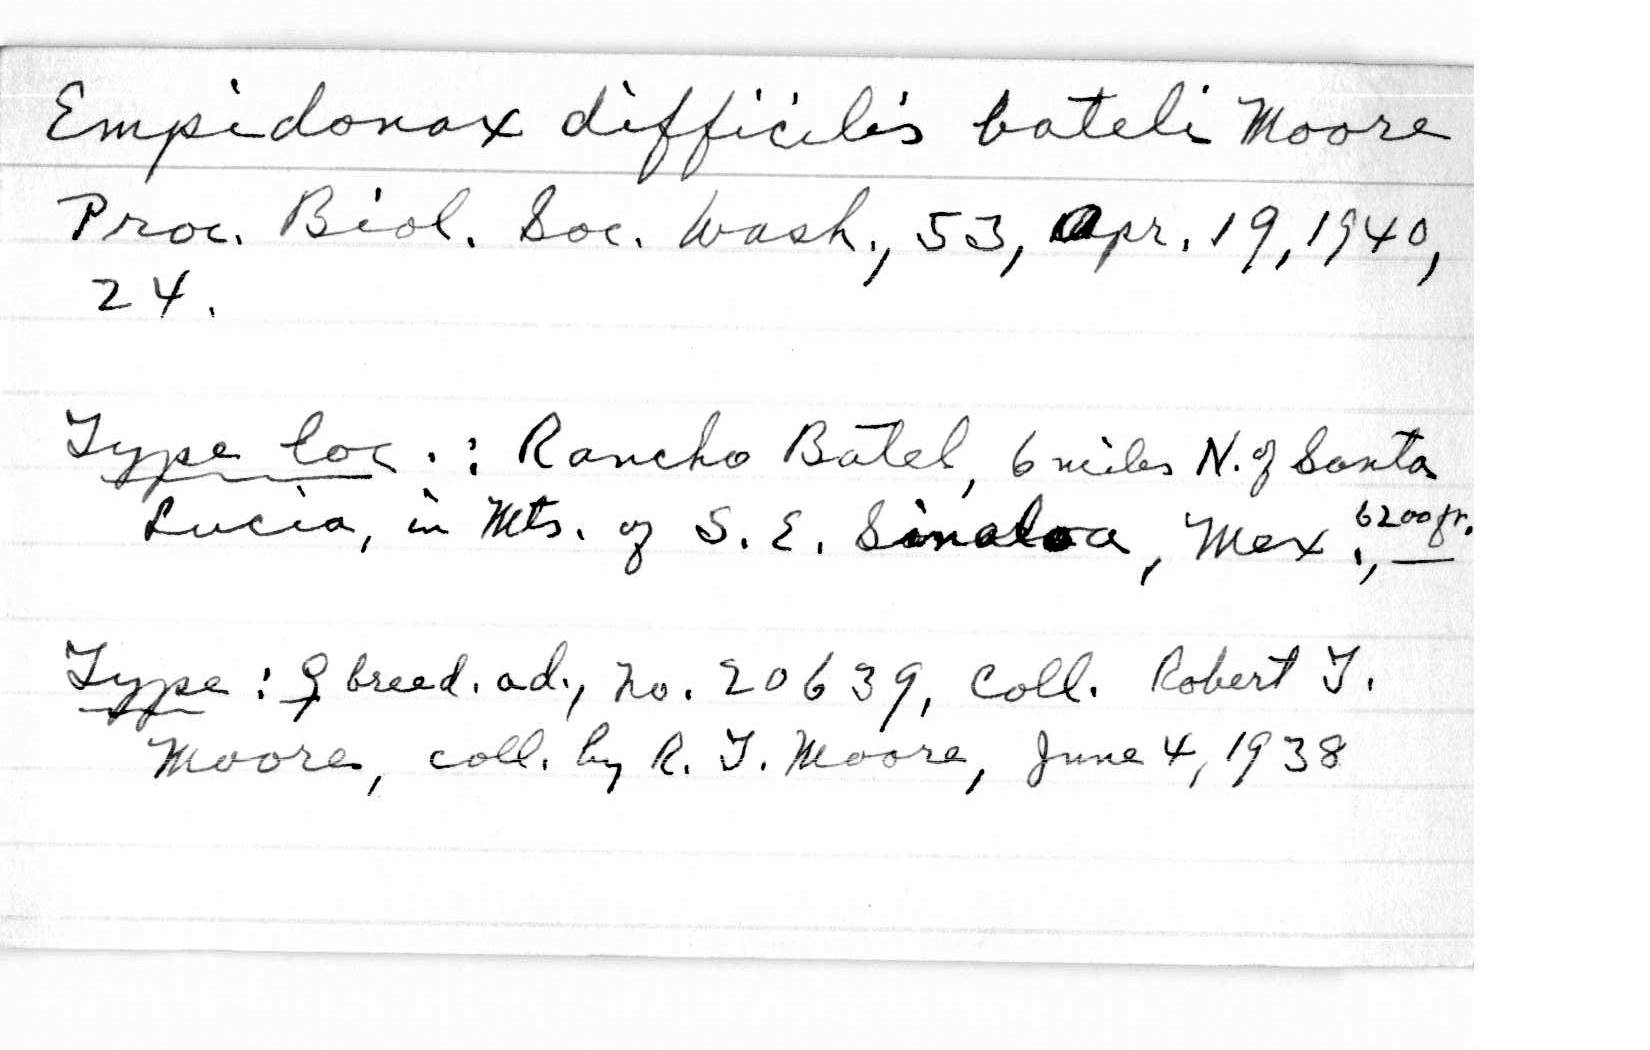 Empidonax difficilis bateli Moore
Proc. Biol. Soc. Wash., 53, Apr. 19, 1940,
24.
Type loc.: Rancho Batel, 6 miles N. of Santa
Lucia, in Mts. of S. E. Sinaloa, Mex., 6200 ft.
Type: ♀ breed. ad., no. 20639, Coll. Robert T.
Moore, coll. by R. T. Moore, June 4, 1938